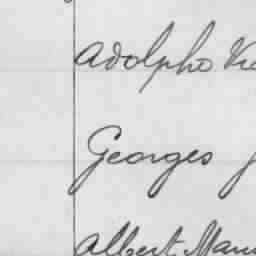 Adolpho
Georges
Albert